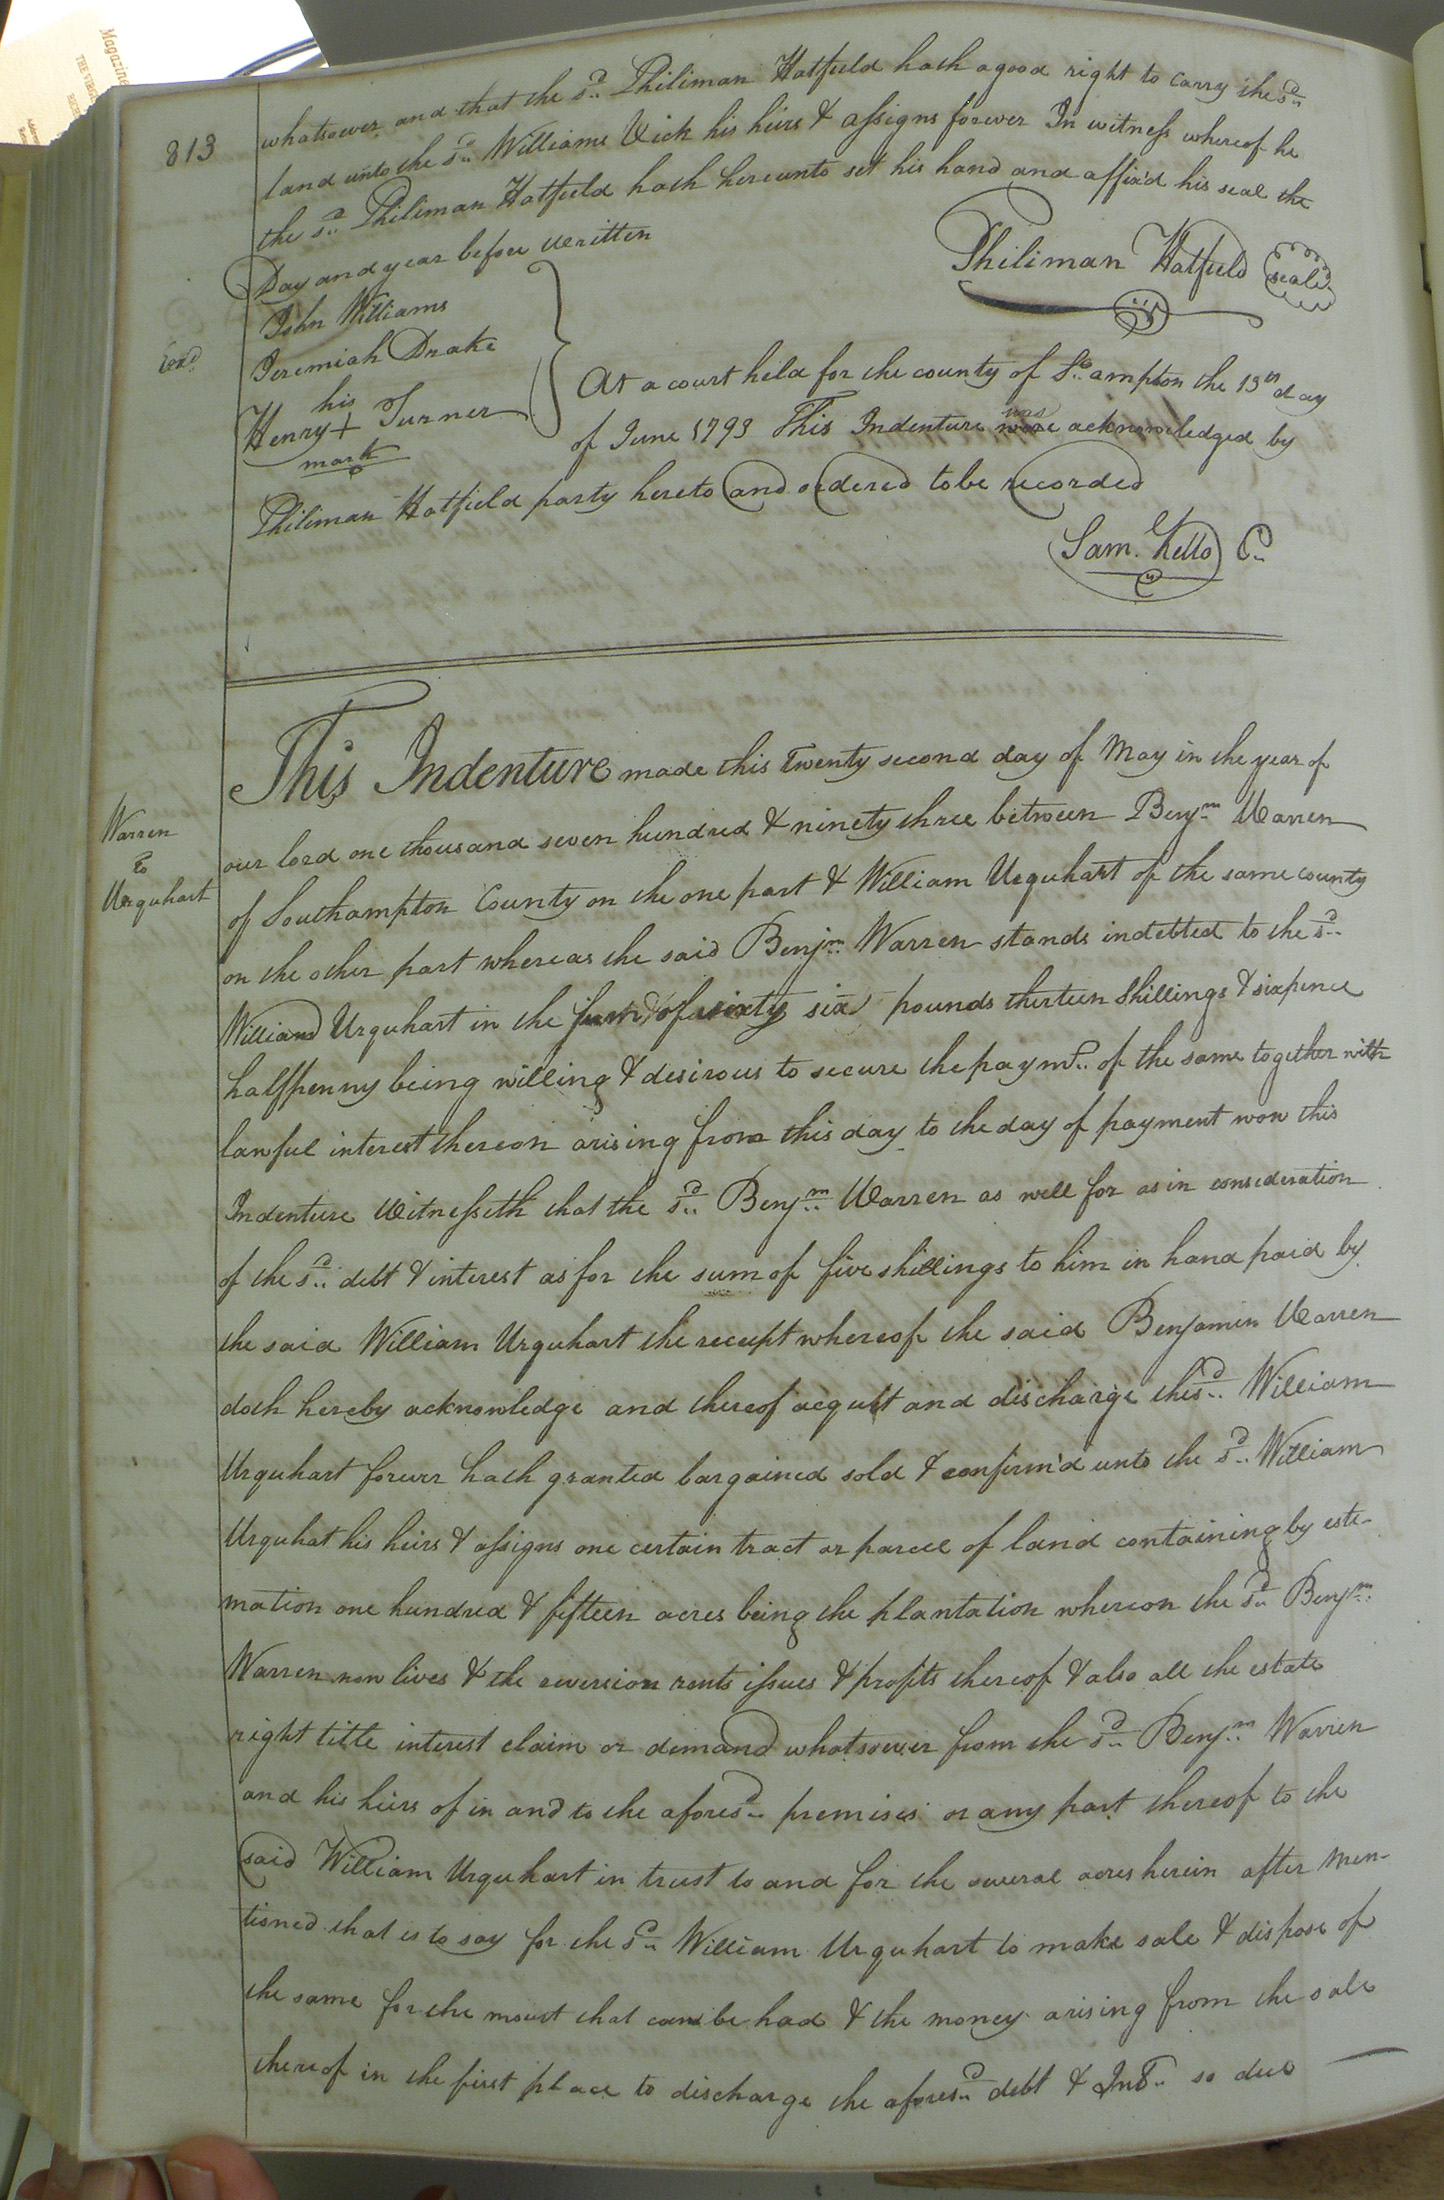 813
whatsoever and that the sd. Philiman Hatfield hath a good right to carry the sd.
land unto the sd. Williams Vick his heirs & assigns forever In witness whereof he
the sd. Philiman Hatfield hath hereunto set his hand and affix'd his seal the
Day and year before Written
Philiman Hatfield seal
John Williams
Jeremiah Drake
his
Henry + Turner
mark
Exd.
At a court held for the county of So.ampton the 13th day
of June 1793 This Indenture was acknowledged by
Philiman Hatfield party hereto and ordered to be recorded
Sam. Kello C.
This Indenture made this Twenty second day of May in the year of
Warren
to
Urquhart
our lord one thousand seven hundred & ninety three between Benjm. Warren
of Southampton County on the one part & William Urquhart of the same county
on the other part whereas the said Benjm. Warren stands indebted to the sd.
William Urquhart in the sum of sixty six pounds thirteen Shillings & sixpence
halfpenny being willing & desirous to secure the paymt. of the same together with
lawful interest thereon arising from this day to the day of payment now this
Indenture Witnesseth that the sd. Benjm. Warren as well for as in consideration
of the sd. debt & interest as for the sum of five shillings to him in hand paid by
the said William Urquhart the receipt whereof the said Benjamin Warren
doth hereby acknowledge and thereof acquit and discharge the sd. William
Urquhart forever hath granted bargained sold & confirm'd unto the sd. William
Urquhat his heirs & assigns one certain tract or parcel of land containing by esti-
mation one hundred & fifteen acres being the plantation whereon the sd. Benjm.
Warren now lives & the reversion rents issues & profits thereof & also all the estate
right title interest claim or demand whatsoever from the sd. Benjm. Warren
and his heirs of in and to the aforesd. premises or any part thereof to the
said William Urquhart in trust to and for the several acres herein after men-
tioned that is to say for the sd. William Urquhart to make sale & dispose of
the same for the moust that can be had & the money arising from the sale
thereof in the first place to discharge the aforesd. debt & Int. so due